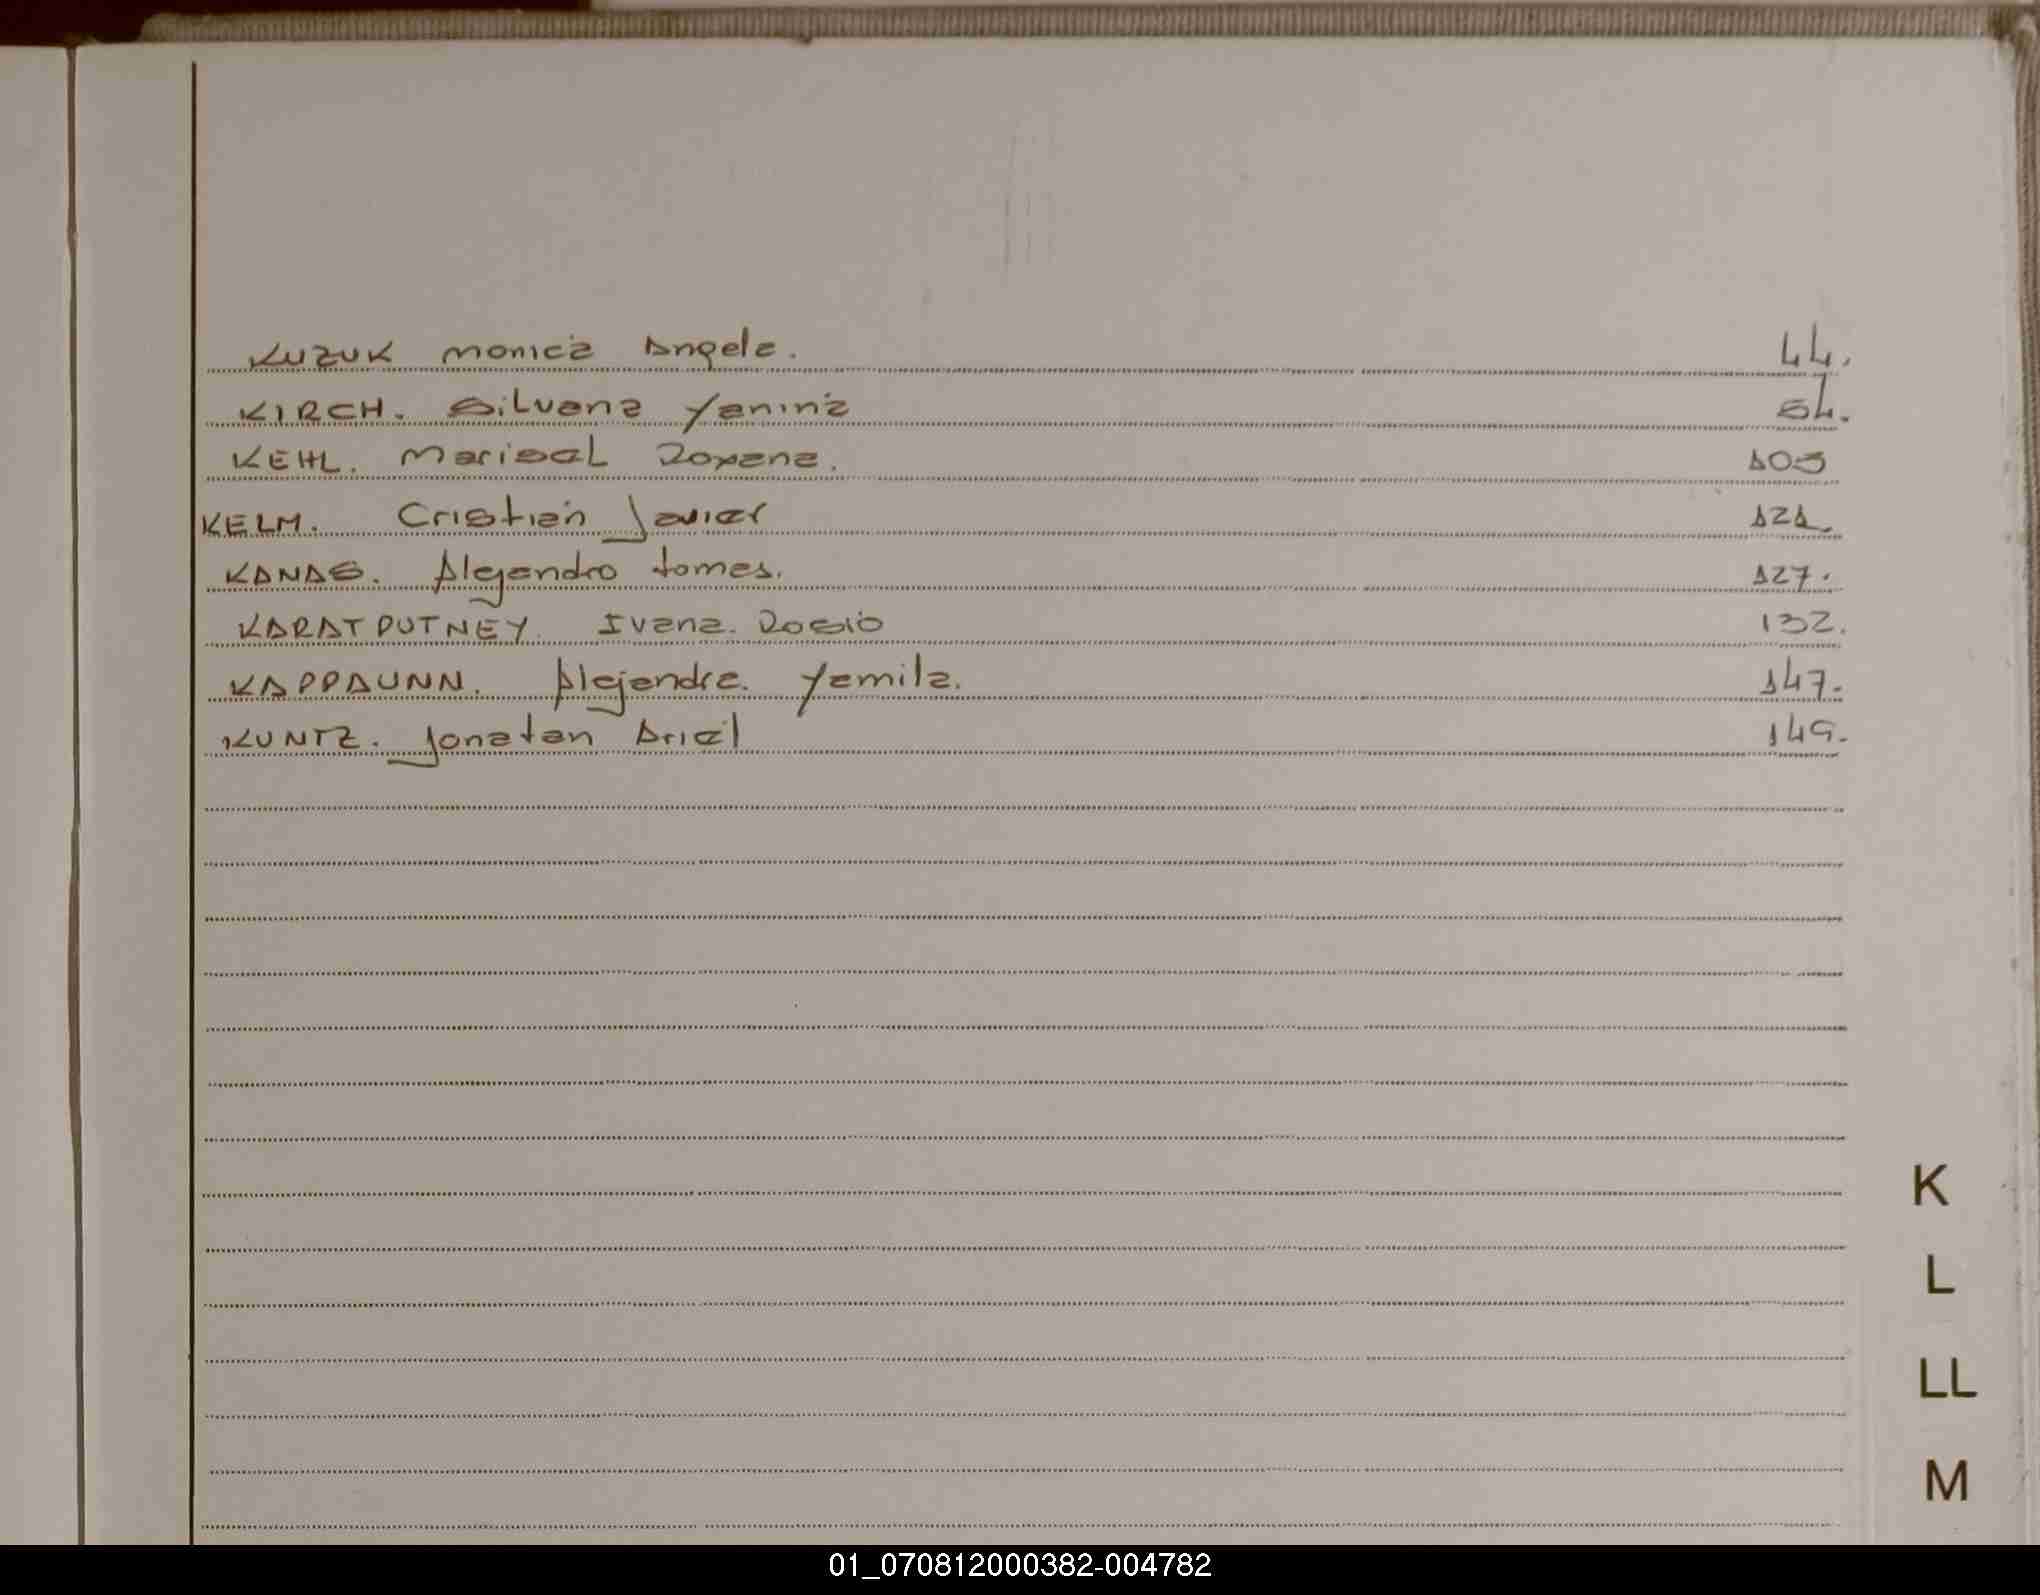 KUZUK Monica Angela. 44.
KIRCH. Silvana Yanina 54.
KEHL. Marisol Roxana. 105
KELM. Cristian Javier 121.
KANAS. Alejandro tomas. 127.
KARATPUTNEY. Ivana. Rosio 132.
KAPPAUNN. Alejandra. Yamila. 147.
KUNTZ. Jonatan Ariel 149.
K
L
LL
M
01_070812000382-004782